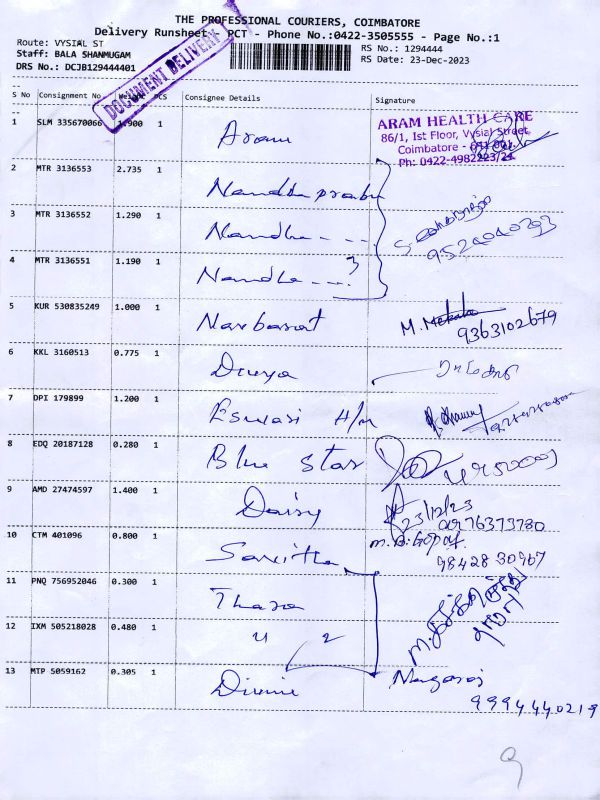 THE PROFESSIONAL COURIERS, COIMBATORE
Delivery Runsheet - PCT - Phone No.:0422-3505555 - Page No.:1
Route: VYSIAL ST
RS No.: 1294444
Staff: BALA SHANMUGAM
RS Date: 23-Dec-2023
DRS No.: DCJB129444401
DOCUMENT DELIVERY
S No Consignment No Weight PCS Consignee Details Signature
1 SLM 335670066 1.900 1 Aram
ARAM HEALTH CARE
86/1, Ist Floor, Vysial Street,
Coimbatore - 641 001.
Ph: 0422-4982223/24
2 MTR 3136553 2.735 1 Nandha prabu
3 MTR 3136552 1.290 1 Nandha - - -
9524040393
4 MTR 3136551 1.190 1 Nandha - - - 3
5 KUR 530835249 1.000 1 M. 9363102679
6 KKL 3160513 0.775 1 Divya
7 DPI 179899 1.200 1 Eswari H/w
8 EDQ 20187128 0.280 1 Blue Star
9 AMD 27474597 1.400 1 Daisy 23/12/23
10 CTM 401096 0.800 1 Savitha
98428 30967
11 PNQ 756952046 0.300 1 Thara
12 IXM 505218028 0.480 1 " 2
13 MTP 5059162 0.305 1 Divine
9994440219
9